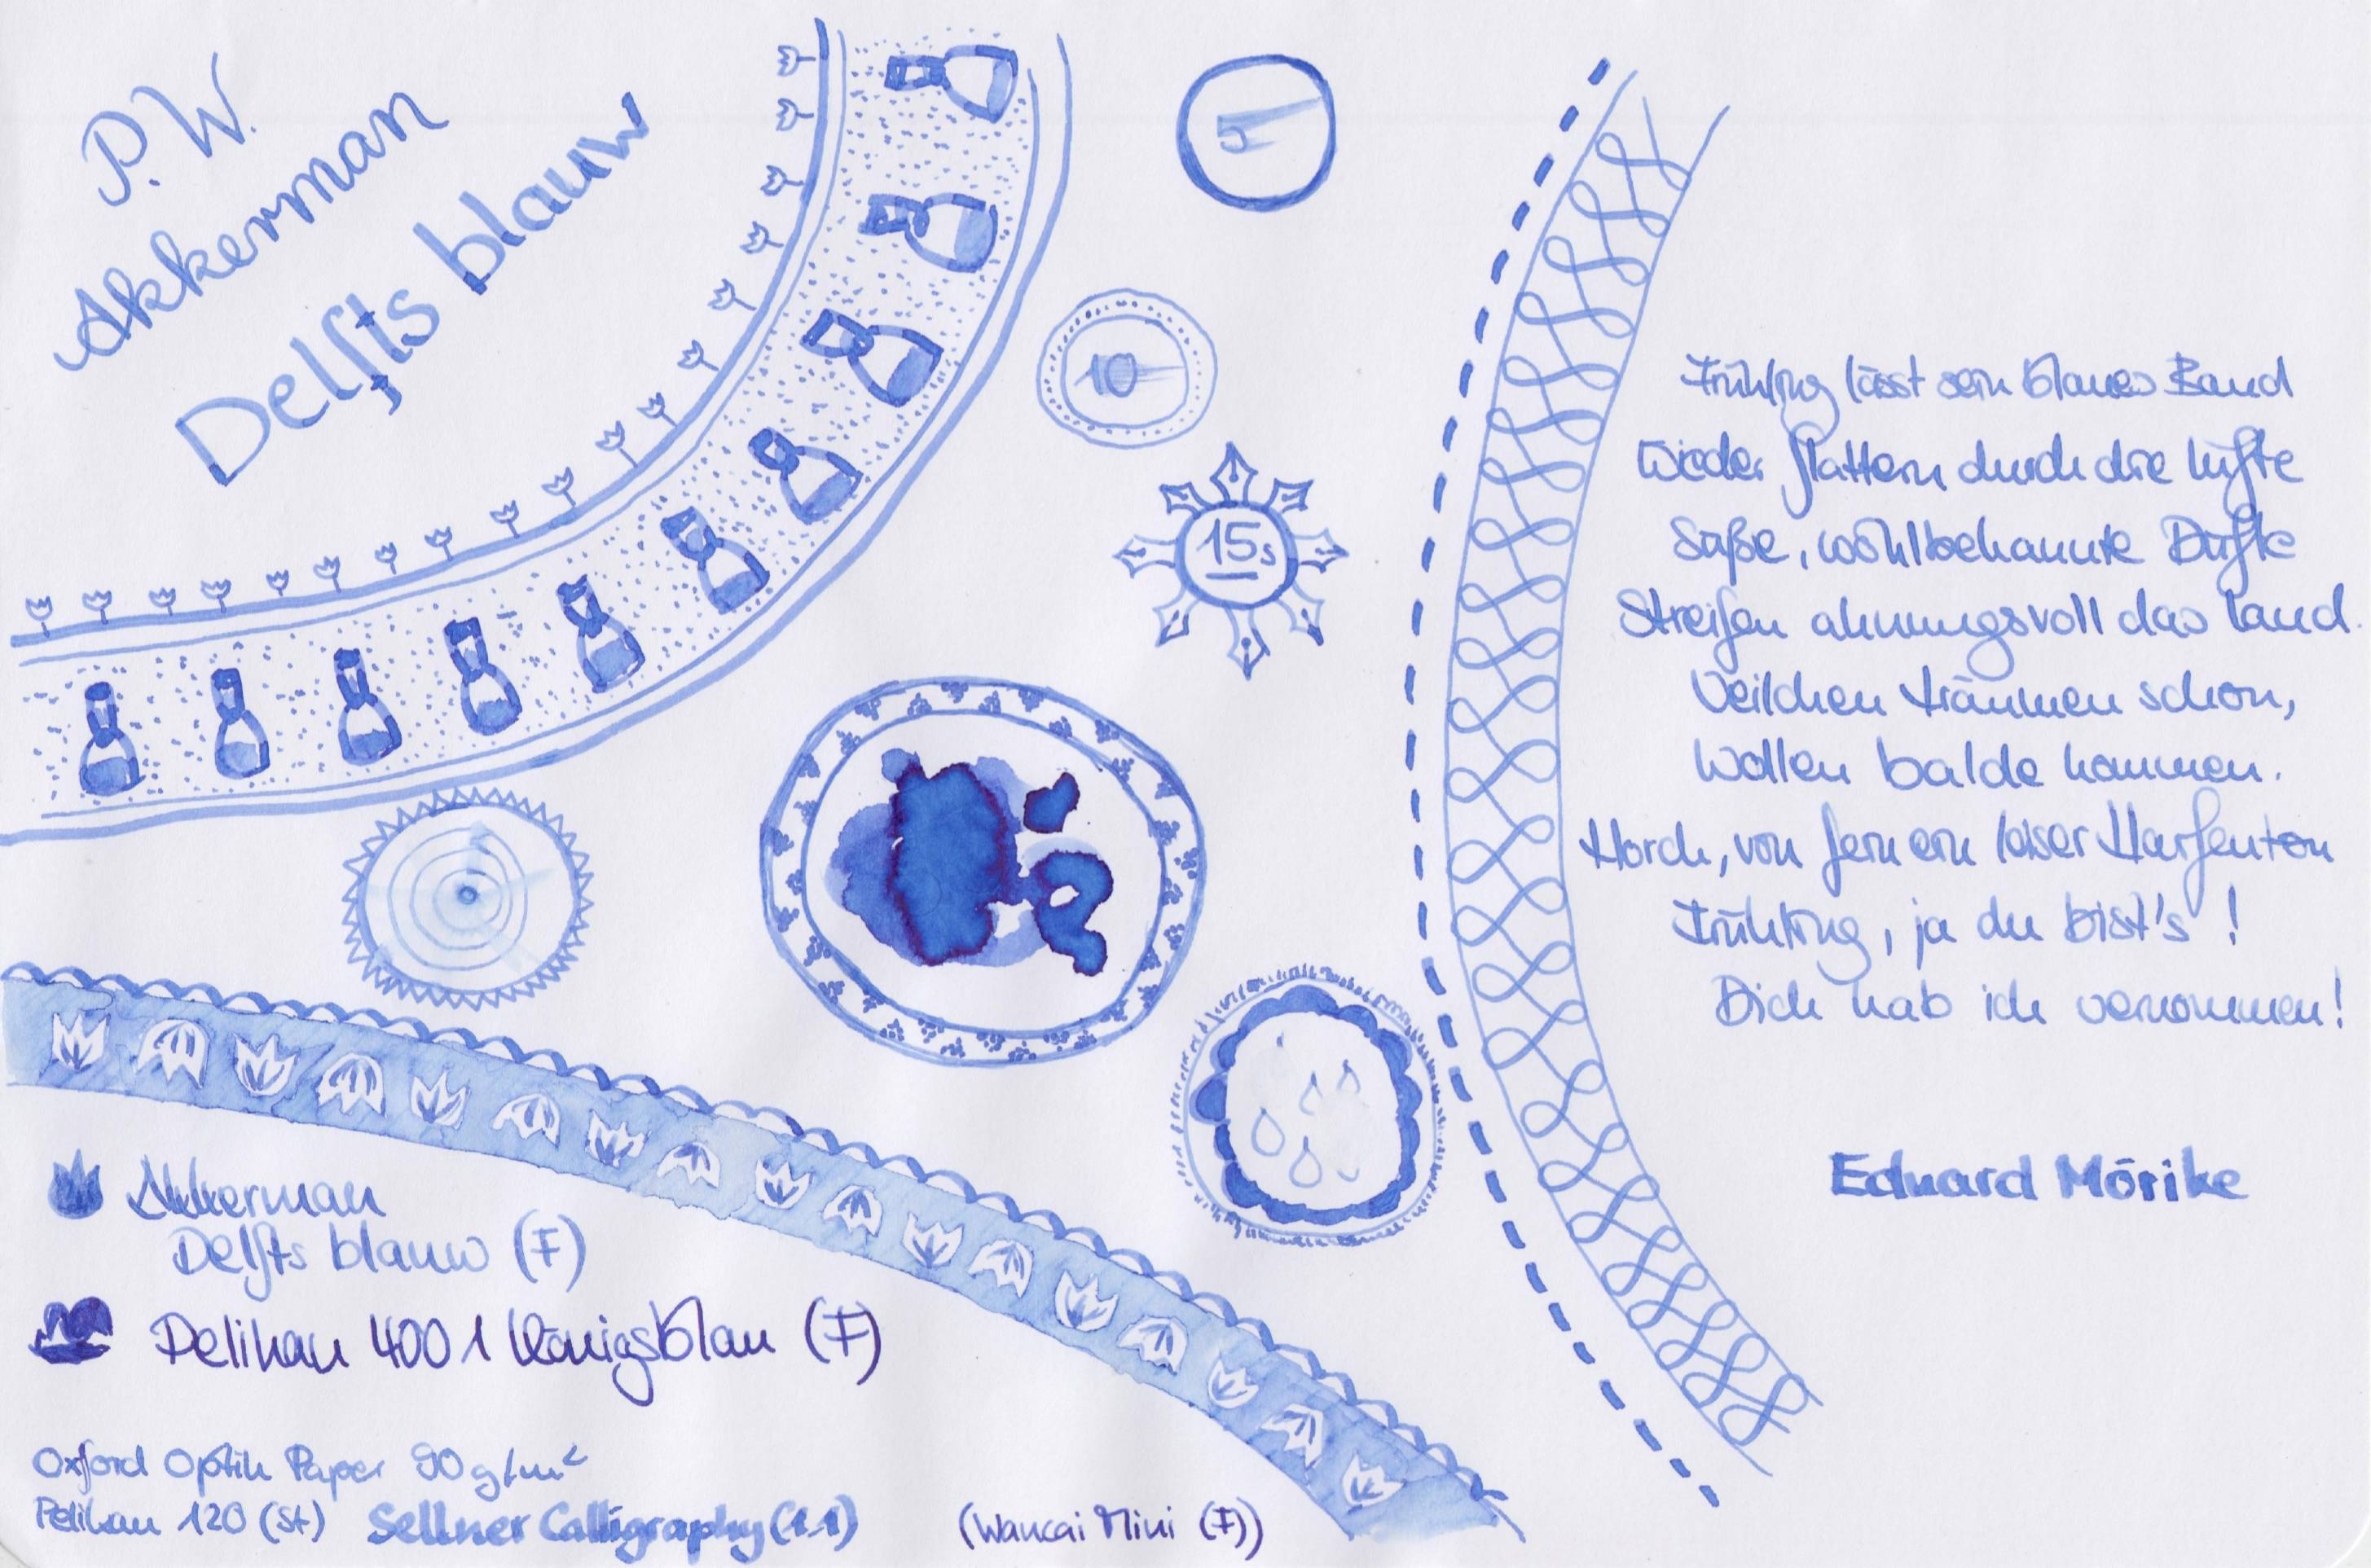 P.W.
Akkerman
Delfts blauw
5
10
15s
Frühling lässt sein blaues Band
Wieder flattern durch die Lüfte
Süße, wohlbekannte Düfte
Streifen ahnungsvoll das Land.
Veilchen träumen schon,
Wollen balde kommen.
Horch, von fern ein leiser Harfenton
Frühling, ja du bist's!
Dich hab ich vernommen!
Eduard Mörike
Akkerman
Delfts blauw (F)
Pelikan 4001 Königsblau (F)
Oxford Optik Paper 90 g/m²
Pelikan 120 (St) Sellner Calligraphy (1.1) (Wancai Mini (F))